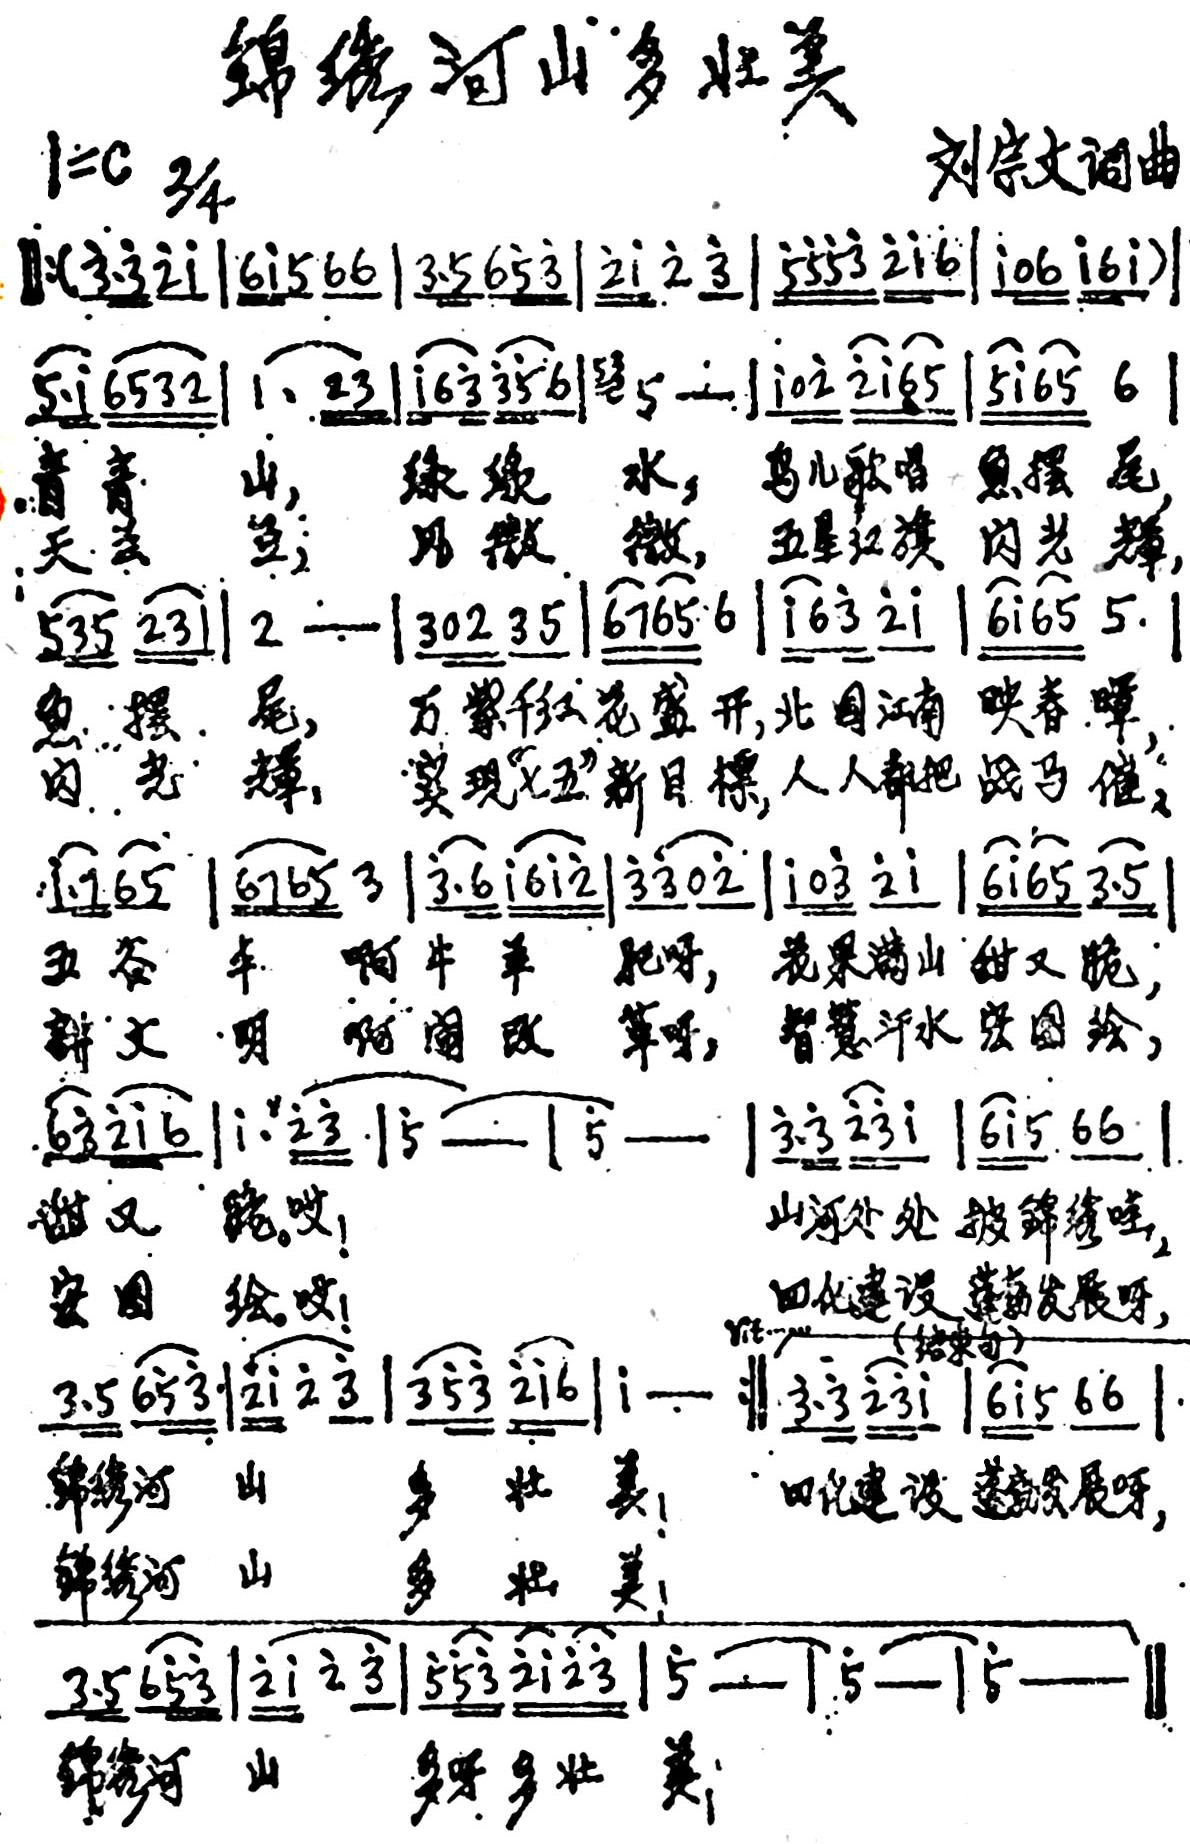 锦绣河山多壮美
1=C 2/4
刘宗文词曲
‖:(3̇·3̇ 2̇i̇ | 6i̇5 66 | 3·5 6 5̇3̇ | 2̇i̇ 2̇ 3̇ | 5̇5̇5̇3̇ 2̇i̇6 | i̇06 i̇6i̇) |
5·i̇ 6532 | 1· 23 | i̇63̇ 3̇5̇6 | 5 — | i̇02̇ 2̇i̇65 | 5i̇65 6 |
青青 山, 绿绿 水, 鸟儿歌唱 鱼摆尾,
天蓝 蓝, 风微 微, 五星红旗 闪光辉,
535 231 | 2 — | 302 35 | 6765 6 | i̇63̇ 2̇i̇ | 6i̇65 5· |
鱼摆尾, 万紫千红花盛开,北国江南 映春晖,
闪光辉, 实现“七五”新目标,人人都把 战马催,
i̇·7 65 | 6765 3 | 3̇·6 i̇6i̇2̇ | 3̇3̇02̇ | i̇03̇ 2̇i̇ | 6i̇65 3·5 |
五谷丰 啊牛羊 肥呀, 花果满山 甜又脆,
讲文明 啊闹改 革呀, 智慧汗水 宏图绘,
63̇ 2̇i̇6 | i̇· 2̇3̇ | 5̇ — | 5̇ — | 3̇·3̇ 2̇3̇i̇ | 6i̇5 66 |
甜又 脆。哎! 山河处处 披锦绣哇,
宏图 绘。哎! 四化建设 蓬勃发展呀,
rit...... (结束句)
3·5 65̇3̇ | 2̇i̇ 2̇ 3̇ | 3̇5̇3̇ 2̇i̇6 | i̇ — :‖ 3̇·3̇ 2̇3̇i̇ | 6i̇5 66 |
锦绣河 山 多 壮 美! 四化建设 蓬勃发展呀,
锦绣河 山 多 壮 美!
3·5 65̇3̇ | 2̇i̇ 2̇ 3̇ | 5̇5̇3̇ 2̇i̇2̇3̇ | 5̇ — | 5̇ — | 5̇ — ‖
锦绣河 山 多呀多壮 美!